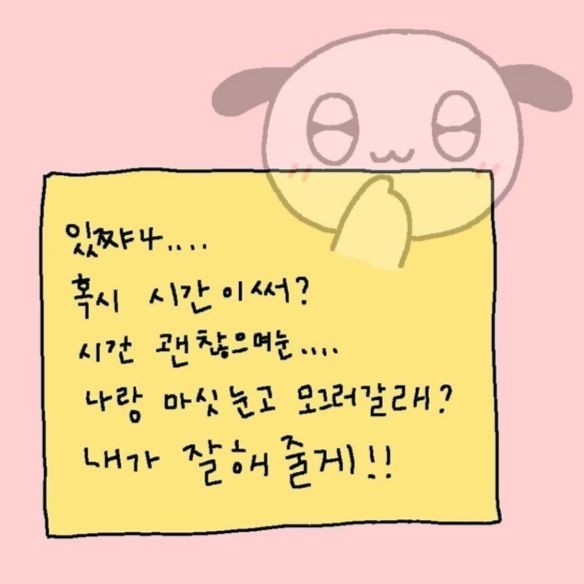 있쨔나....
혹시 시간이써?
시간 괜찮으며눈....
나랑 마싯눈고 모그러갈래?
내가 잘해줄게!!